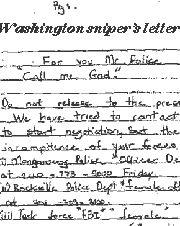 Pg 2.
Washington sniper's letter
For you Mr Police
Call me God."
Do not release to the press
We have tried to contact
to start negotiation, but the
incompitence of your forces
Montgomery Police "Officer De
at 240-773-5000 Friday
Rockville Police Dept "female off
at
iii) Task force "FBI" "female"